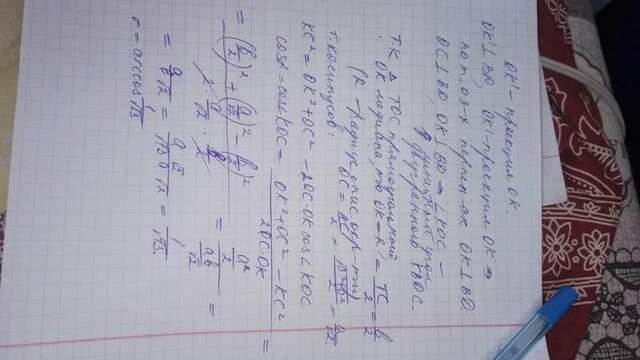 OK' - проекция OK.
OK' ⊥ BD, OK' - проекция OK ⇒
по т. о 3-х перп-ах OK ⊥ BD.
OC ⊥ BD, OK ⊥ BD ⇒ ∠KOC -
линейный угол
двугранного
Т.к. Δ TOC прямоугольный,
OK медиана, то OK = R = TC/2 = b/2
(R - радиус опис. окр-ти)
OC = AC/2 = a/√2
Т. косинусов:
KC² = OK² + OC² - 2OC·OK cos∠KOC
cosα = cos∠KOC = (OK² + OC² - KC²)/(2OC·OK) =
= ((b/2)² + (a/√2)² - (b/2)²)/(2 · a/√2 · b/2) = (a²/2)/(ab/√2) =
= 1/√3.
α = arccos 1/√3